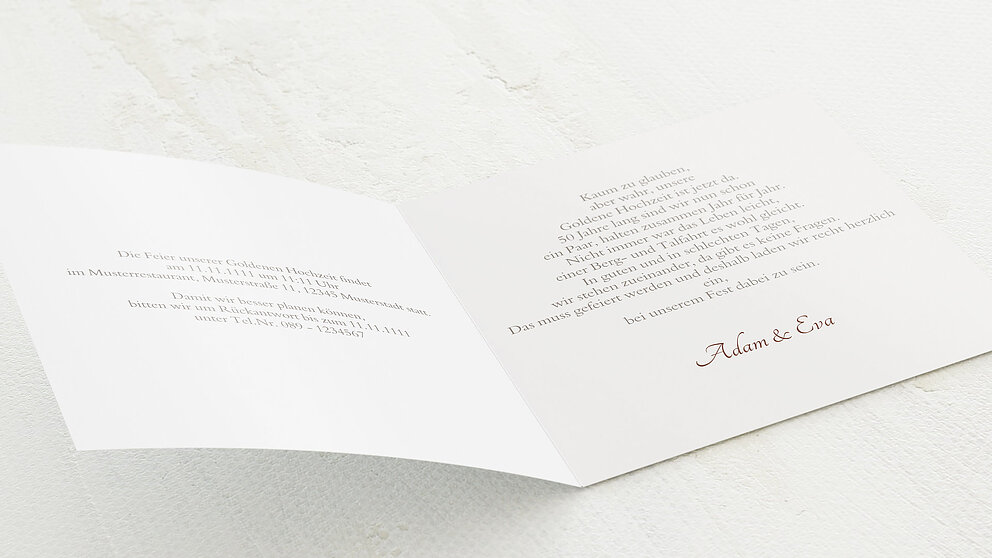 Die Feier unserer Goldenen Hochzeit findet
am 11.11.1111 um 11:11 Uhr
im Musterrestaurant, Musterstraße 11, 12345 Musterstadt statt.
Damit wir besser planen können,
bitten wir um Rückantwort bis zum 11.11.1111
unter Tel.Nr. 089 - 1234567
Kaum zu glauben,
aber wahr, unsere
Goldene Hochzeit ist jetzt da.
50 Jahre lang sind wir nun schon
ein Paar, halten zusammen Jahr für Jahr.
Nicht immer war das Leben leicht,
einer Berg- und Talfahrt es wohl gleicht.
In guten und in schlechten Tagen,
wir stehen zueinander, da gibt es keine Fragen.
Das muss gefeiert werden und deshalb laden wir recht herzlich
ein,
bei unserem Fest dabei zu sein.
Adam & Eva